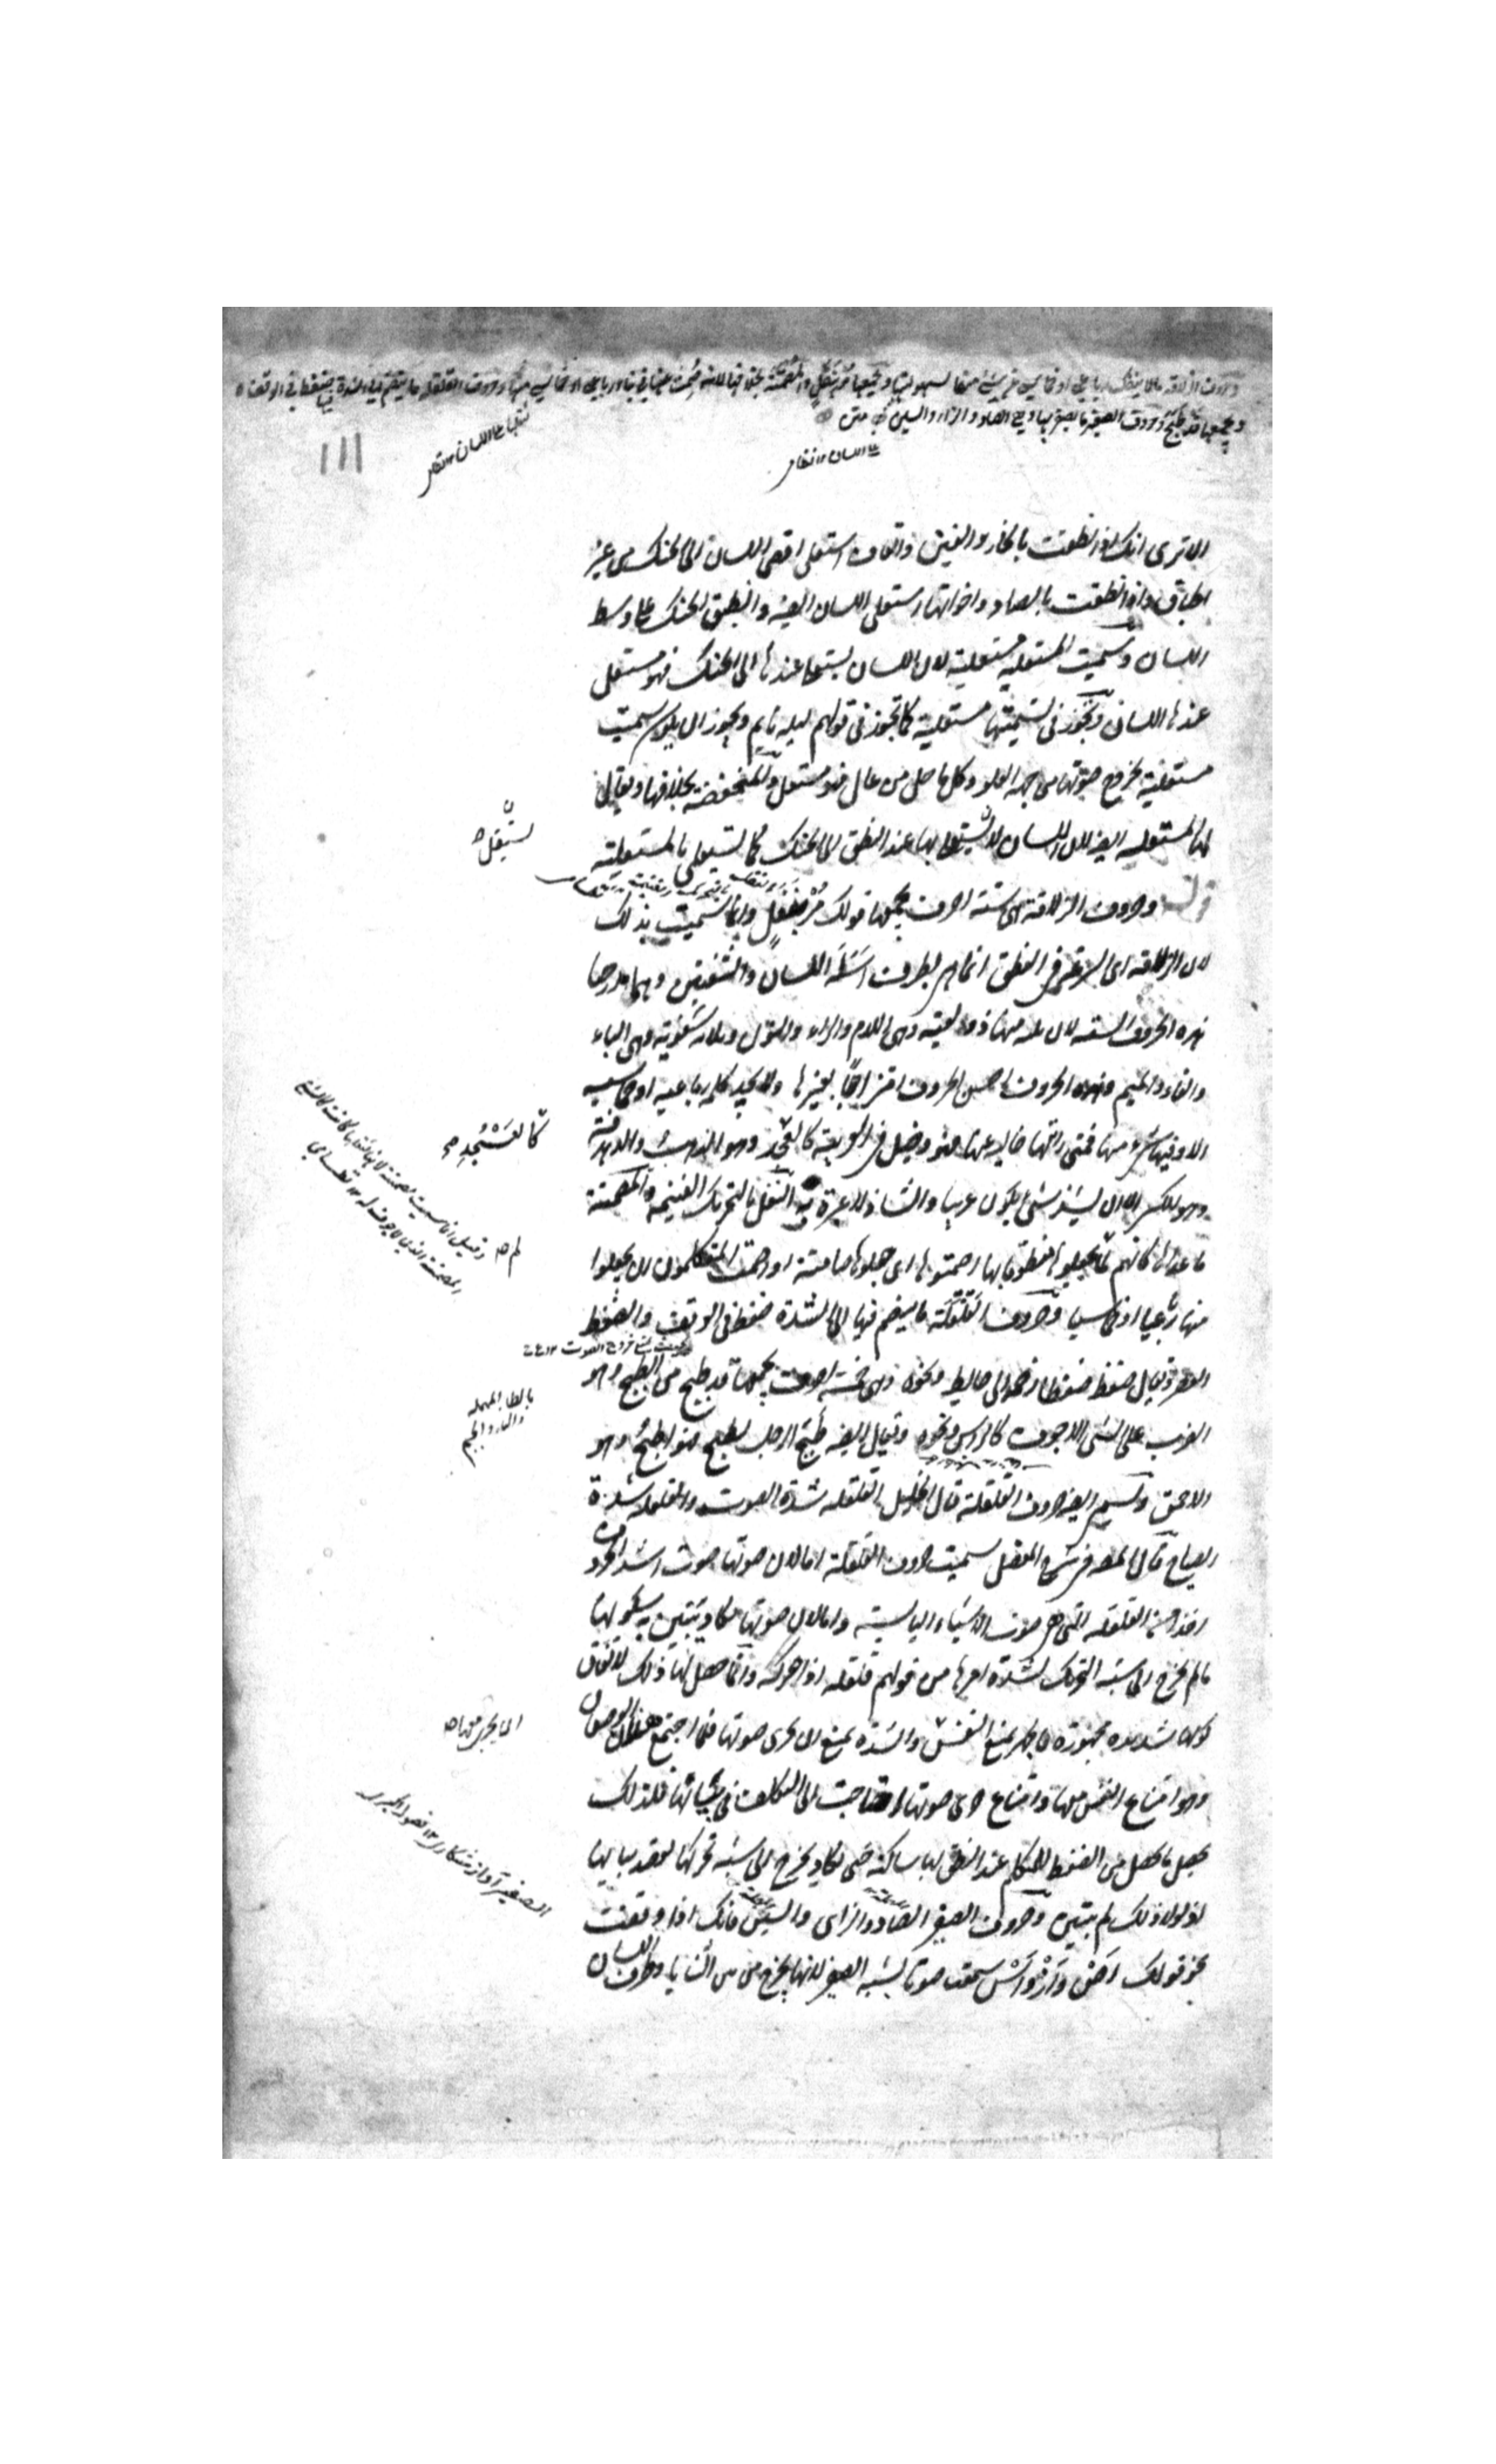 وحروف الذلاقة ما لا ينفك رباعي او خماسي عن شيء منها لسهولتها ويجمعها مر بنفل والمصمتة بخلافها لانه صمت عنها في بناء رباعي او خماسي منها وحروف القلقلة ما ينضم الى الشدة فيها ضغط في الوقف
ويجمعها قد طبج وحروف الصفير ما يصفر بها وهي الصاد والزاء والسين متن
١١١
الا ترى انك اذا نطقت بالخاء والغين والقاف استعلى اقصى اللسان الى الحنك من غير
اطباق واذا نطقت بالصاد واخواتها استعلى اللسان ايضا وانطبق الحنك على وسط
اللسان وسميت المستعلية مستعلية لان اللسان يستعلى عندها الى الحنك فهو مستعلى
عندها اللسان وتجوز في تسميتها مستعلية كما تجوز في قولهم ليله نايم ويجوز ان يكون سميت
مستعلية لخروج صوتها من جهة العلو وكل ما حل من عال فهو مستعل والمنخفضة بخلافها ويقال
لها المستفله ايضا لان اللسان لا يستعلى بها عند النطق الى الحنك كما يستعلى بالمستعلية
يستفل
قوله وحروف الذلاقة اى ستة احرف يجمعها قولك مر بنفل وانما سميت بذلك
لان الذلاقة اى السرعة في النطق انما هى بطرف اسلة اللسان والشفتين وهما مدرجتا
هذه الحروف الستة لان ثلثة منها ذولقية وهى اللام والراء والنون وثلاثه شفوية وهى الباء
والفاء والميم وهذه الحروف احسن الحروف امتزاجا بغيرها ولا تجد كلمة رباعية او خماسية
الا وفيها شىء منها فمتى رايتها خاليه عنها فهو دخيل في العربية كالعسجد وهو الذهب والدهدقة
كالعسجد
وهو الكسر الا ان يشذ شىء يكون عربيا والشاذ لا عبرة به النفل بالتحريك الغنيمة والمصمتة
ما عداها كانهم لما لم يجعلوها منطوقا بها اصمتوها اى جعلوها صامتة او اصمت المتكلمون ان يجعلوا
لم
منها رباعيا او خماسيا وحروف القلقلة ما ينضم فيها الى الشدة ضغط في الوقف والضغط
العصر ويقال ضغطه ضغطا زحمه الى حايط ونحوه وهى خمسة احرف يجمعها قد طبج من الطبج وهو
بالطاء المهملة والباء والجيم
الضرب على الشىء الاجوف كالراس ونحوه ويقال ايضا طبج الرجل يطبج فهو اطبج وهو
الاحمق وتسمى ايضا حروف القلقلة قال الخليل القلقلة شدة الصوت والقلقلة شدة
الصياح قال المصنف في شرح المفصل سميت حروف القلقلة اما لان صوتها صوت اشد الحروف
اخذا من القلقلة التى هى صوت الاشياء اليابسة واما لان صوتها لا يكاد يتبين به سكونها
ما لم يخرج الى شبه التحرك لشدة امرها من قولهم قلقله اذا حركه وانما حصل لها ذلك لاتفاق
كونها شديدة مجهورة فالجهر يمنع النفس والشدة تمنع ان يجرى صوتها فلما اجتمع هذان الوصفان
وهو امتناع النفس معها وامتناع جرى صوتها احتاجت الى التكلف في بيانها فلذلك
يحصل ما يحصل من الضغط للمتكلم عند النطق بها ساكنة حتى تكاد يخرج الى شبه تحركها لقصد بيانها
اذ لولا ذلك لم يتبين وحروف الصفير الصاد والزاى والسين فانك اذا وقفت
نحو قولك اص واز واس سمعت صوتا يشبه الصفير لانها يخرج من بين الثنايا وطرف اللسان